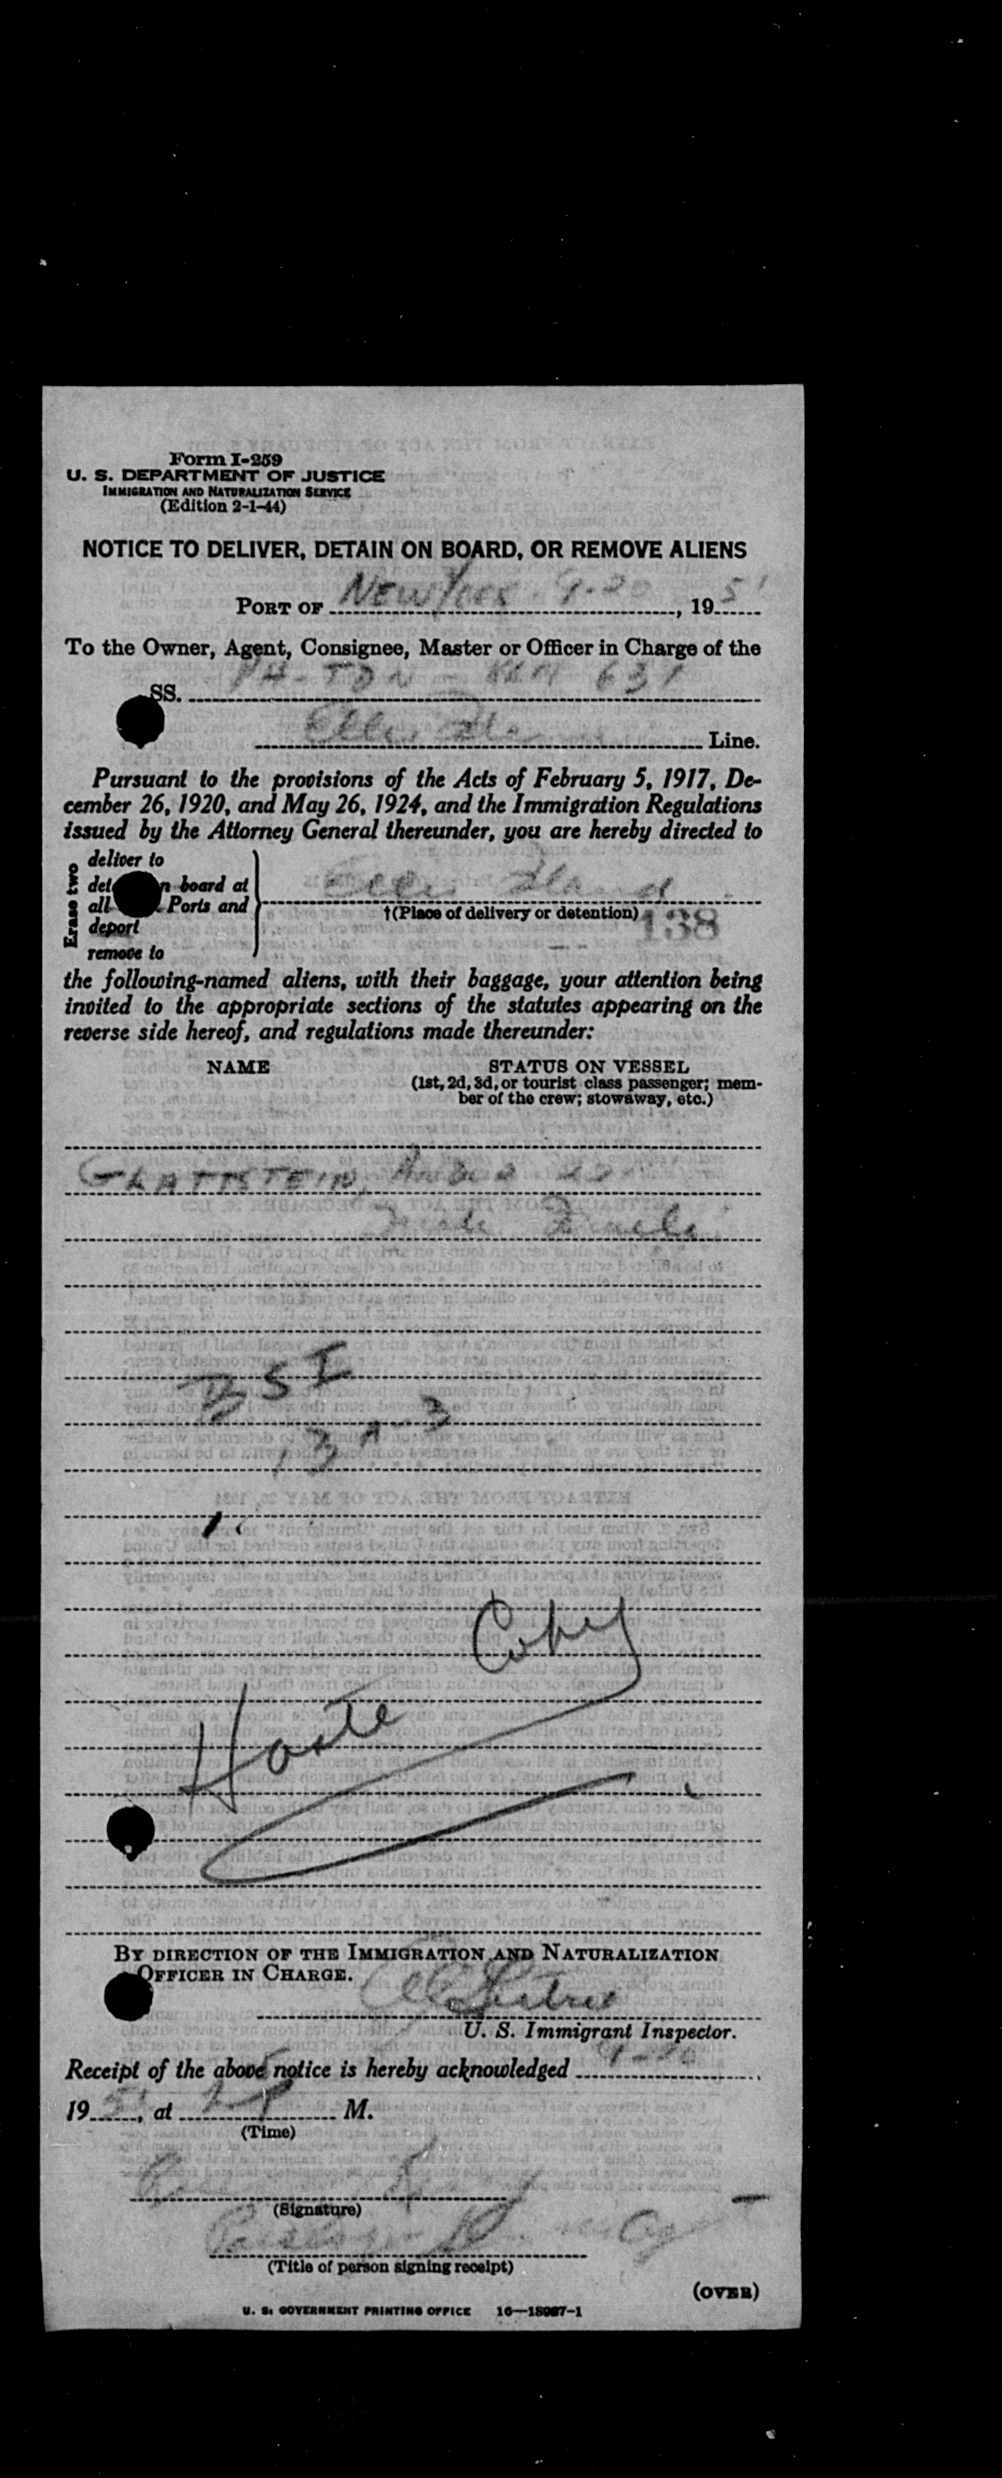 Form I-259
U. S. DEPARTMENT OF JUSTICE
IMMIGRATION AND NATURALIZATION SERVICE
(Edition 2-1-44)
NOTICE TO DELIVER, DETAIN ON BOARD, OR REMOVE ALIENS
PORT OF New York 9-20, 1951
To the Owner, Agent, Consignee, Master or Officer in Charge of the
SS. 631
Line.
Pursuant to the provisions of the Acts of February 5, 1917, De-
cember 26, 1920, and May 26, 1924, and the Immigration Regulations
issued by the Attorney General thereunder, you are hereby directed to
Erase two
deliver to
board at
all Ports and
deport
remove to
Ellis Island
†(Place of delivery or detention)
138
the following-named aliens, with their baggage, your attention being
invited to the appropriate sections of the statutes appearing on the
reverse side hereof, and regulations made thereunder:
NAME
STATUS ON VESSEL
(1st, 2d, 3d, or tourist class passenger; mem-
ber of the crew; stowaway, etc.)
GLATTSTEIN,
BSI
Copy
BY DIRECTION OF THE IMMIGRATION AND NATURALIZATION
OFFICER IN CHARGE.
U. S. Immigrant Inspector.
Receipt of the above notice is hereby acknowledged 9-20,
1951, at M.
(Time)
(Signature)
(Title of person signing receipt)
(OVER)
U. S. GOVERNMENT PRINTING OFFICE 16—18087-1